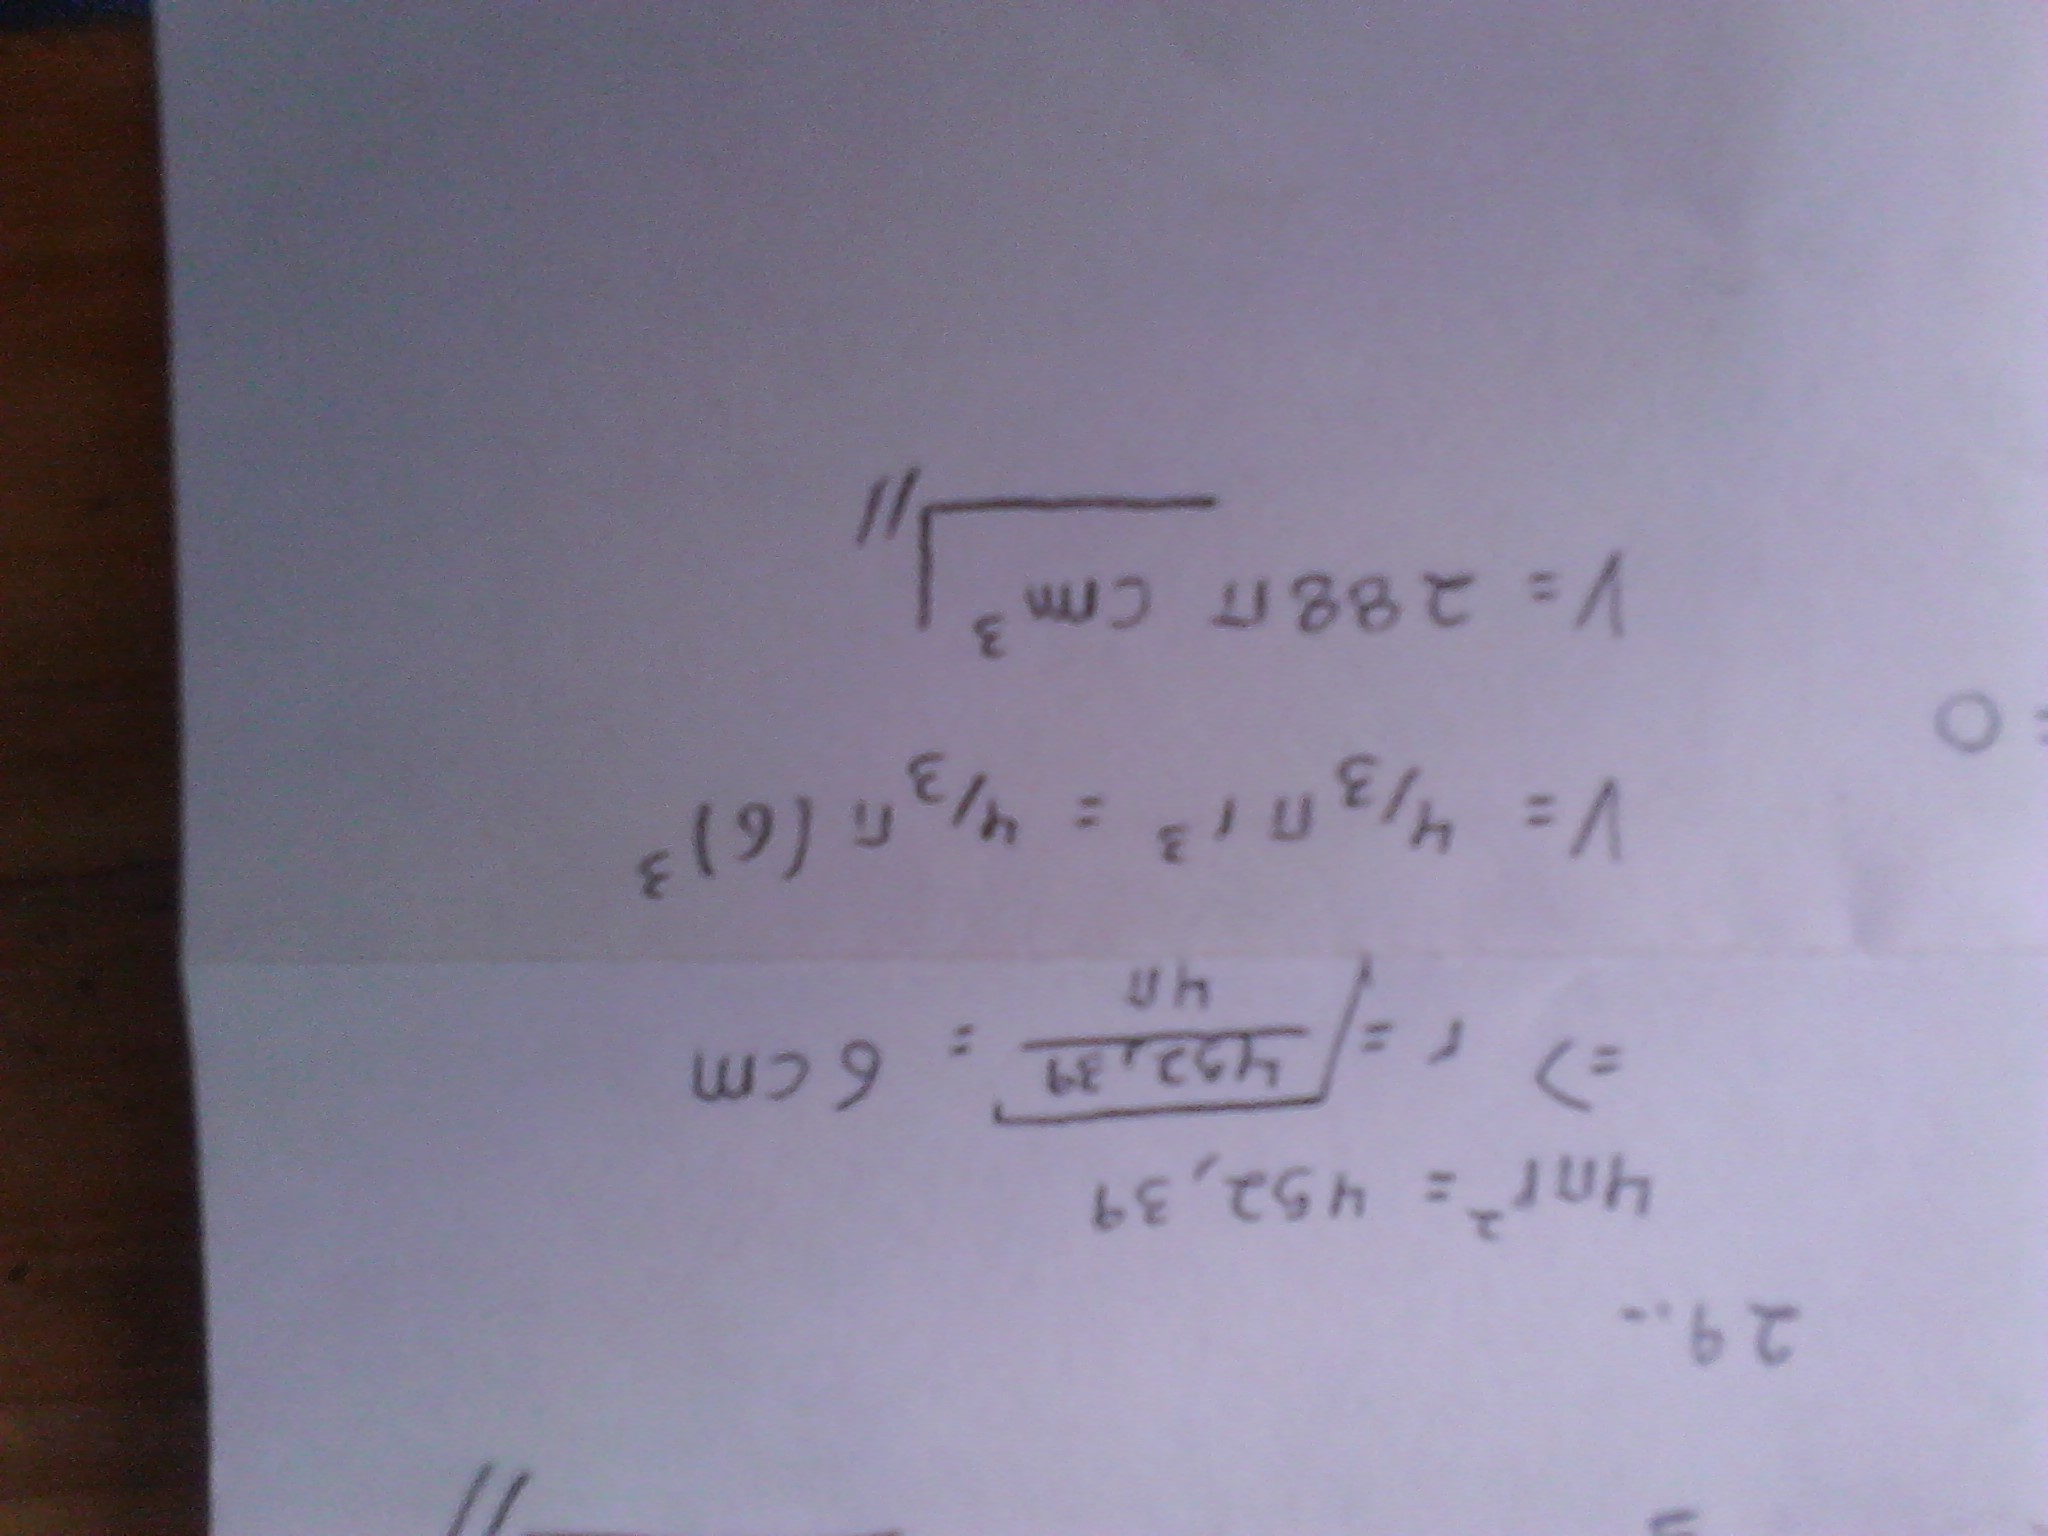 29..
4πr² = 452,39
=> r = √452,39/4π = 6cm
V = 4/3 π r³ = 4/3 π (6)³
V = 288π cm³
= 0